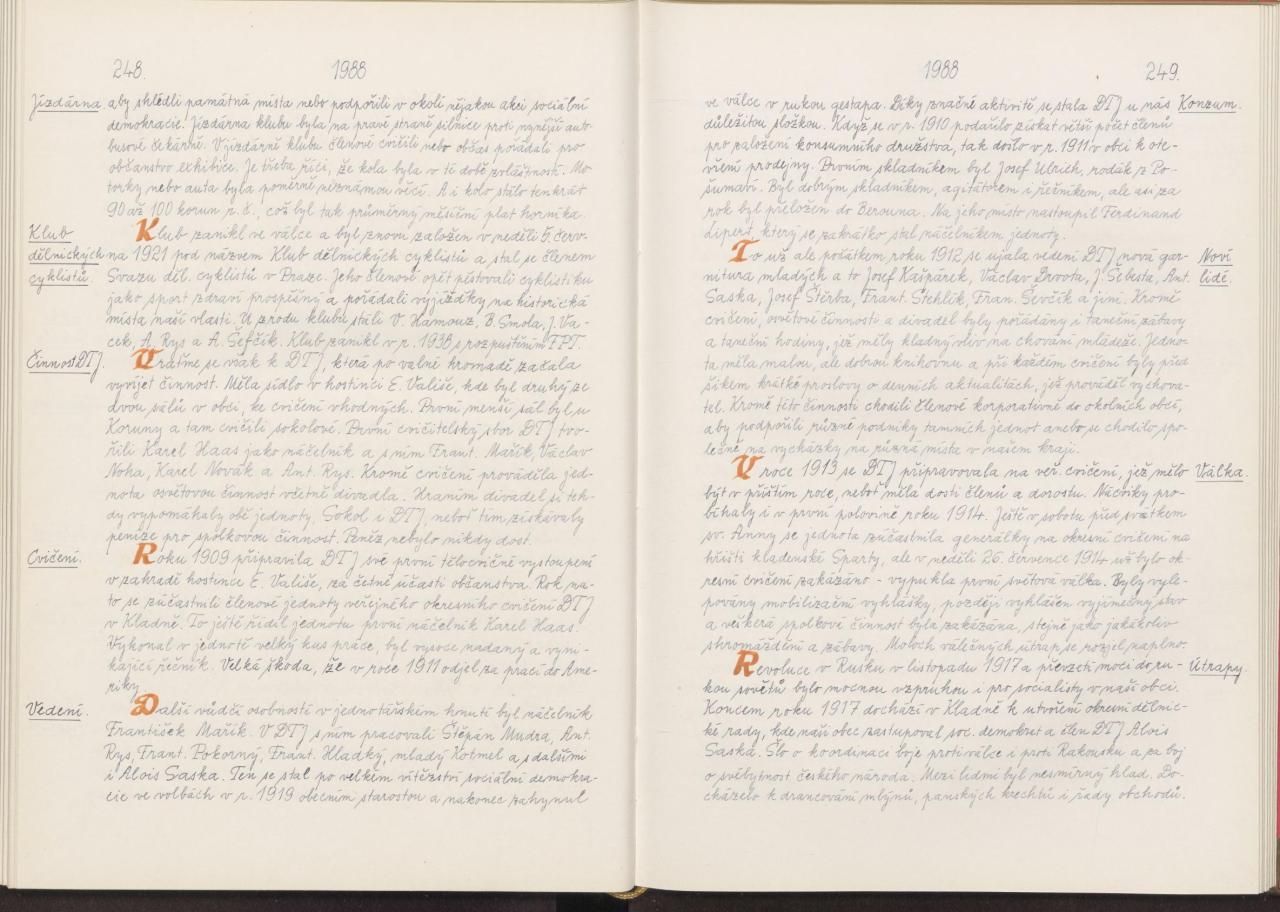 248. 1988
Jízdárna aby shlédli památná místa nebo podpořili v okolí nějakou akci sociální
demokracie. Jízdárna klubu byla na pravé straně silnice proti nynější auto-
busové čekárně. V jízdárně klubu členové cvičili nebo občas pořádali pro
občanstvo exhibice. Je třeba říci, že kola byla v té době zvláštností. Mo-
torky nebo auta byla poměrně neznámou věcí. A i kolo stálo tenkrát
90 až 100 korun r. č., což byl tak průměrný měsíční plat horníka.
Klub Klub zanikl ve válce a byl znovu založen v neděli 5. červ-
dělnických na 1921 pod názvem Klub dělnických cyklistů a stal se členem
cyklistů. Svazu děl. cyklistů v Praze. Jeho členové opět pěstovali cyklistiku
jako sport zdraví prospěšný a pořádali vyjížďky na historická
místa naší vlasti. U zrodu klubu stáli V. Hamouz, B. Smola, J. Va-
cek, A. Rys a A. Šefčík. Klub zanikl v r. 1938 s rozpuštěním FPT.
Činnost DTJ. Vraťme se však k DTJ, která po valné hromadě začala
vyvíjet činnost. Měla sídlo v hostinci E. Vališe, kde byl druhý ze
dvou sálů v obci, ke cvičení vhodných. První menší sál byl u
Koruny a tam cvičili sokolové. První cvičitelský sbor DTJ tvo-
řili Karel Haas jako náčelník a s ním Frant. Mařík, Václav
Noha, Karel Novák a Ant. Rys. Kromě cvičení prováděla jed-
nota osvětovou činnost včetně divadla. Hraním divadel si teh-
dy vypomáhaly obě jednoty, Sokol i DTJ, neboť tím získávaly
peníze pro spolkovou činnost. Peněz nebylo nikdy dost.
Cvičení. Roku 1909 připravila DTJ své první tělocvičné vystoupení
v zahradě hostince E. Vališe, za četné účasti občanstva. Rok na-
to se zúčastnili členové jednoty veřejného okresního cvičení DTJ
v Kladně. To ještě řídil jednotu první náčelník Karel Haas.
Vykonal v jednotě velký kus práce, byl vysoce nadaný a vyni-
kající řečník. Velká škoda, že v roce 1911 odjel za prací do Ame-
riky.
Vedení. Další vůdčí osobností v jednotářském hnutí byl náčelník
František Mařík. V DTJ s ním pracovali Štěpán Mudra, Ant.
Rys, Frant. Pokorný, Frant. Hladký, mladý Kotmel a s dalšími
i Alois Saska. Ten se stal po velkém vítězství sociální demokra-
cie ve volbách v r. 1919 obecním starostou a nakonec zahynul
1988 249.
ve válce v rukou gestapa. Díky značné aktivitě se stala DTJ u nás Konzum.
důležitou složkou. Když se v r. 1910 podařilo získat větší počet členů
pro založení konsumního družstva, tak došlo v r. 1911 v obci k ote-
vření prodejny. Prvním skladníkem byl Josef Ulrich, rodák z Po-
šumaví. Byl dobrým skladníkem, agitátorem i řečníkem, ale asi za
rok byl přeložen do Berouna. Na jeho místo nastoupil Ferdinand
Lipert, který se zakrátko stal náčelníkem jednoty.
To už ale počátkem roku 1912 se ujala vedení DTJ nová gar- Noví
nitura mladých a to Josef Kašpárek, Václav Drvota, J. Šebesta, Ant. lidé.
Saska, Josef Štěrba, Frant. Stehlík, Fran. Ševčík a jiní. Kromě
cvičení, osvětové činnosti a divadel byly pořádány i taneční zábavy
a taneční hodiny, jež měly kladný vliv na chování mládeže. Jedno-
ta měla malou, ale dobrou knihovnu a při každém cvičení byly před
šikem krátké proslovy o denních aktualitách, jež prováděl vychova-
tel. Kromě této činnosti chodili členové korporativně do okolních obcí,
aby podpořili různé podniky tamních jednot anebo se chodilo spo-
lečně na vycházky na různá místa v našem kraji.
V roce 1913 se DTJ připravovala na veř. cvičení, jež mělo Válka.
být v příštím roce, neboť měla dosti členů a dorostu. Nácviky pro-
bíhaly i v první polovině roku 1914. Ještě v sobotu před svátkem
sv. Anny se jednota zúčastnila generálky na okresní cvičení na
hřišti kladenské Sparty, ale v neděli 26. července 1914 už bylo ok-
resní cvičení zakázáno - vypukla první světová válka. Byly vyle-
povány mobilizační vyhlášky, později vyhlášen vyjímečný stav
a veškerá spolková činnost byla zakázána, stejně jako jakákoliv
shromáždění a zábavy. Moloch válečných útrap se rozjel naplno.
Revoluce v Rusku v listopadu 1917 a převzetí moci do ru- Útrapy.
kou sovětů bylo mocnou vzpruhou i pro socialisty v naší obci.
Koncem roku 1917 dochází v Kladně k utvoření okresní dělnic-
ké rady, kde naši obec zastupoval soc. demokrat a člen DTJ Alois
Saska. Šlo o koordinaci boje proti válce i proti Rakousku a za boj
o svébytnost českého národa. Mezi lidmi byl nesmírný hlad. Do-
cházelo k drancování mlýnů, panských krechtů i řady obchodů.